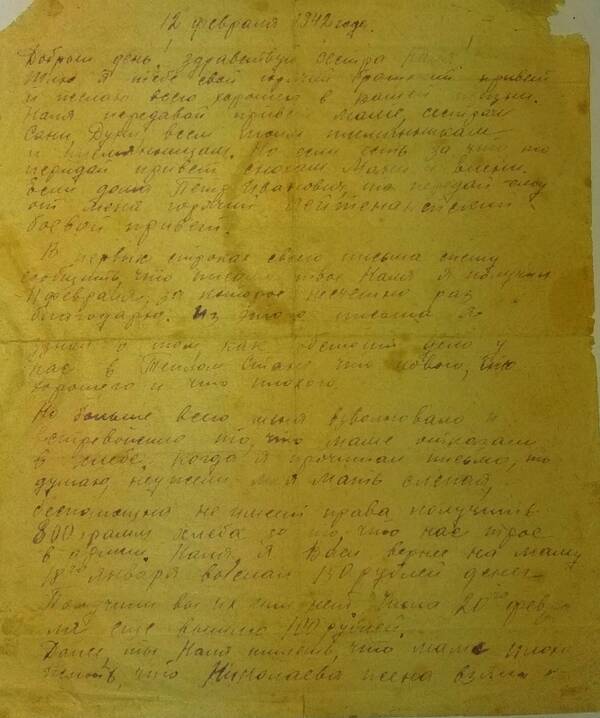 12 февраля 1942 года.
Добрый день! здравствуй сестра Капа!
Шлю я тебе свой горячий братский привет
и желаю всего хорошего в вашей жизни.
передавай привет маме, сестрам
Сани, Дуни, всем твоим племянникам
и племянницам. Но если есть за что то
передай привет снохам Мани и
Если дома Петр Иванович, то передай ему
от меня горячий лейтенантский
боевой привет.
В первых строках своего письма спешу
сообщить, что письмо твое я получил
февраля, за которое несчетно раз
благодарю. Из этого письма я
узнал о том, как обстоит дело у
нас в Теплом Стане что нового, что
хорошего и что плохого.
Но больше всего меня взволновало и
встревожило то, что маме отказали
в хлебе. Когда я прочитал письмо, то
думаю, неужели моя мать слепая,
беспомощна не имеет права получить
800 грамм хлеба за то, что нас трое
в армии. я Вам вернее на маму
18го января выслал 150 рублей денег
Получили вы их или нет. 20го фев-
ля еще вышлю 100 рублей.
Далее ты пишешь, что маме плохо
что Николаева жена взяла